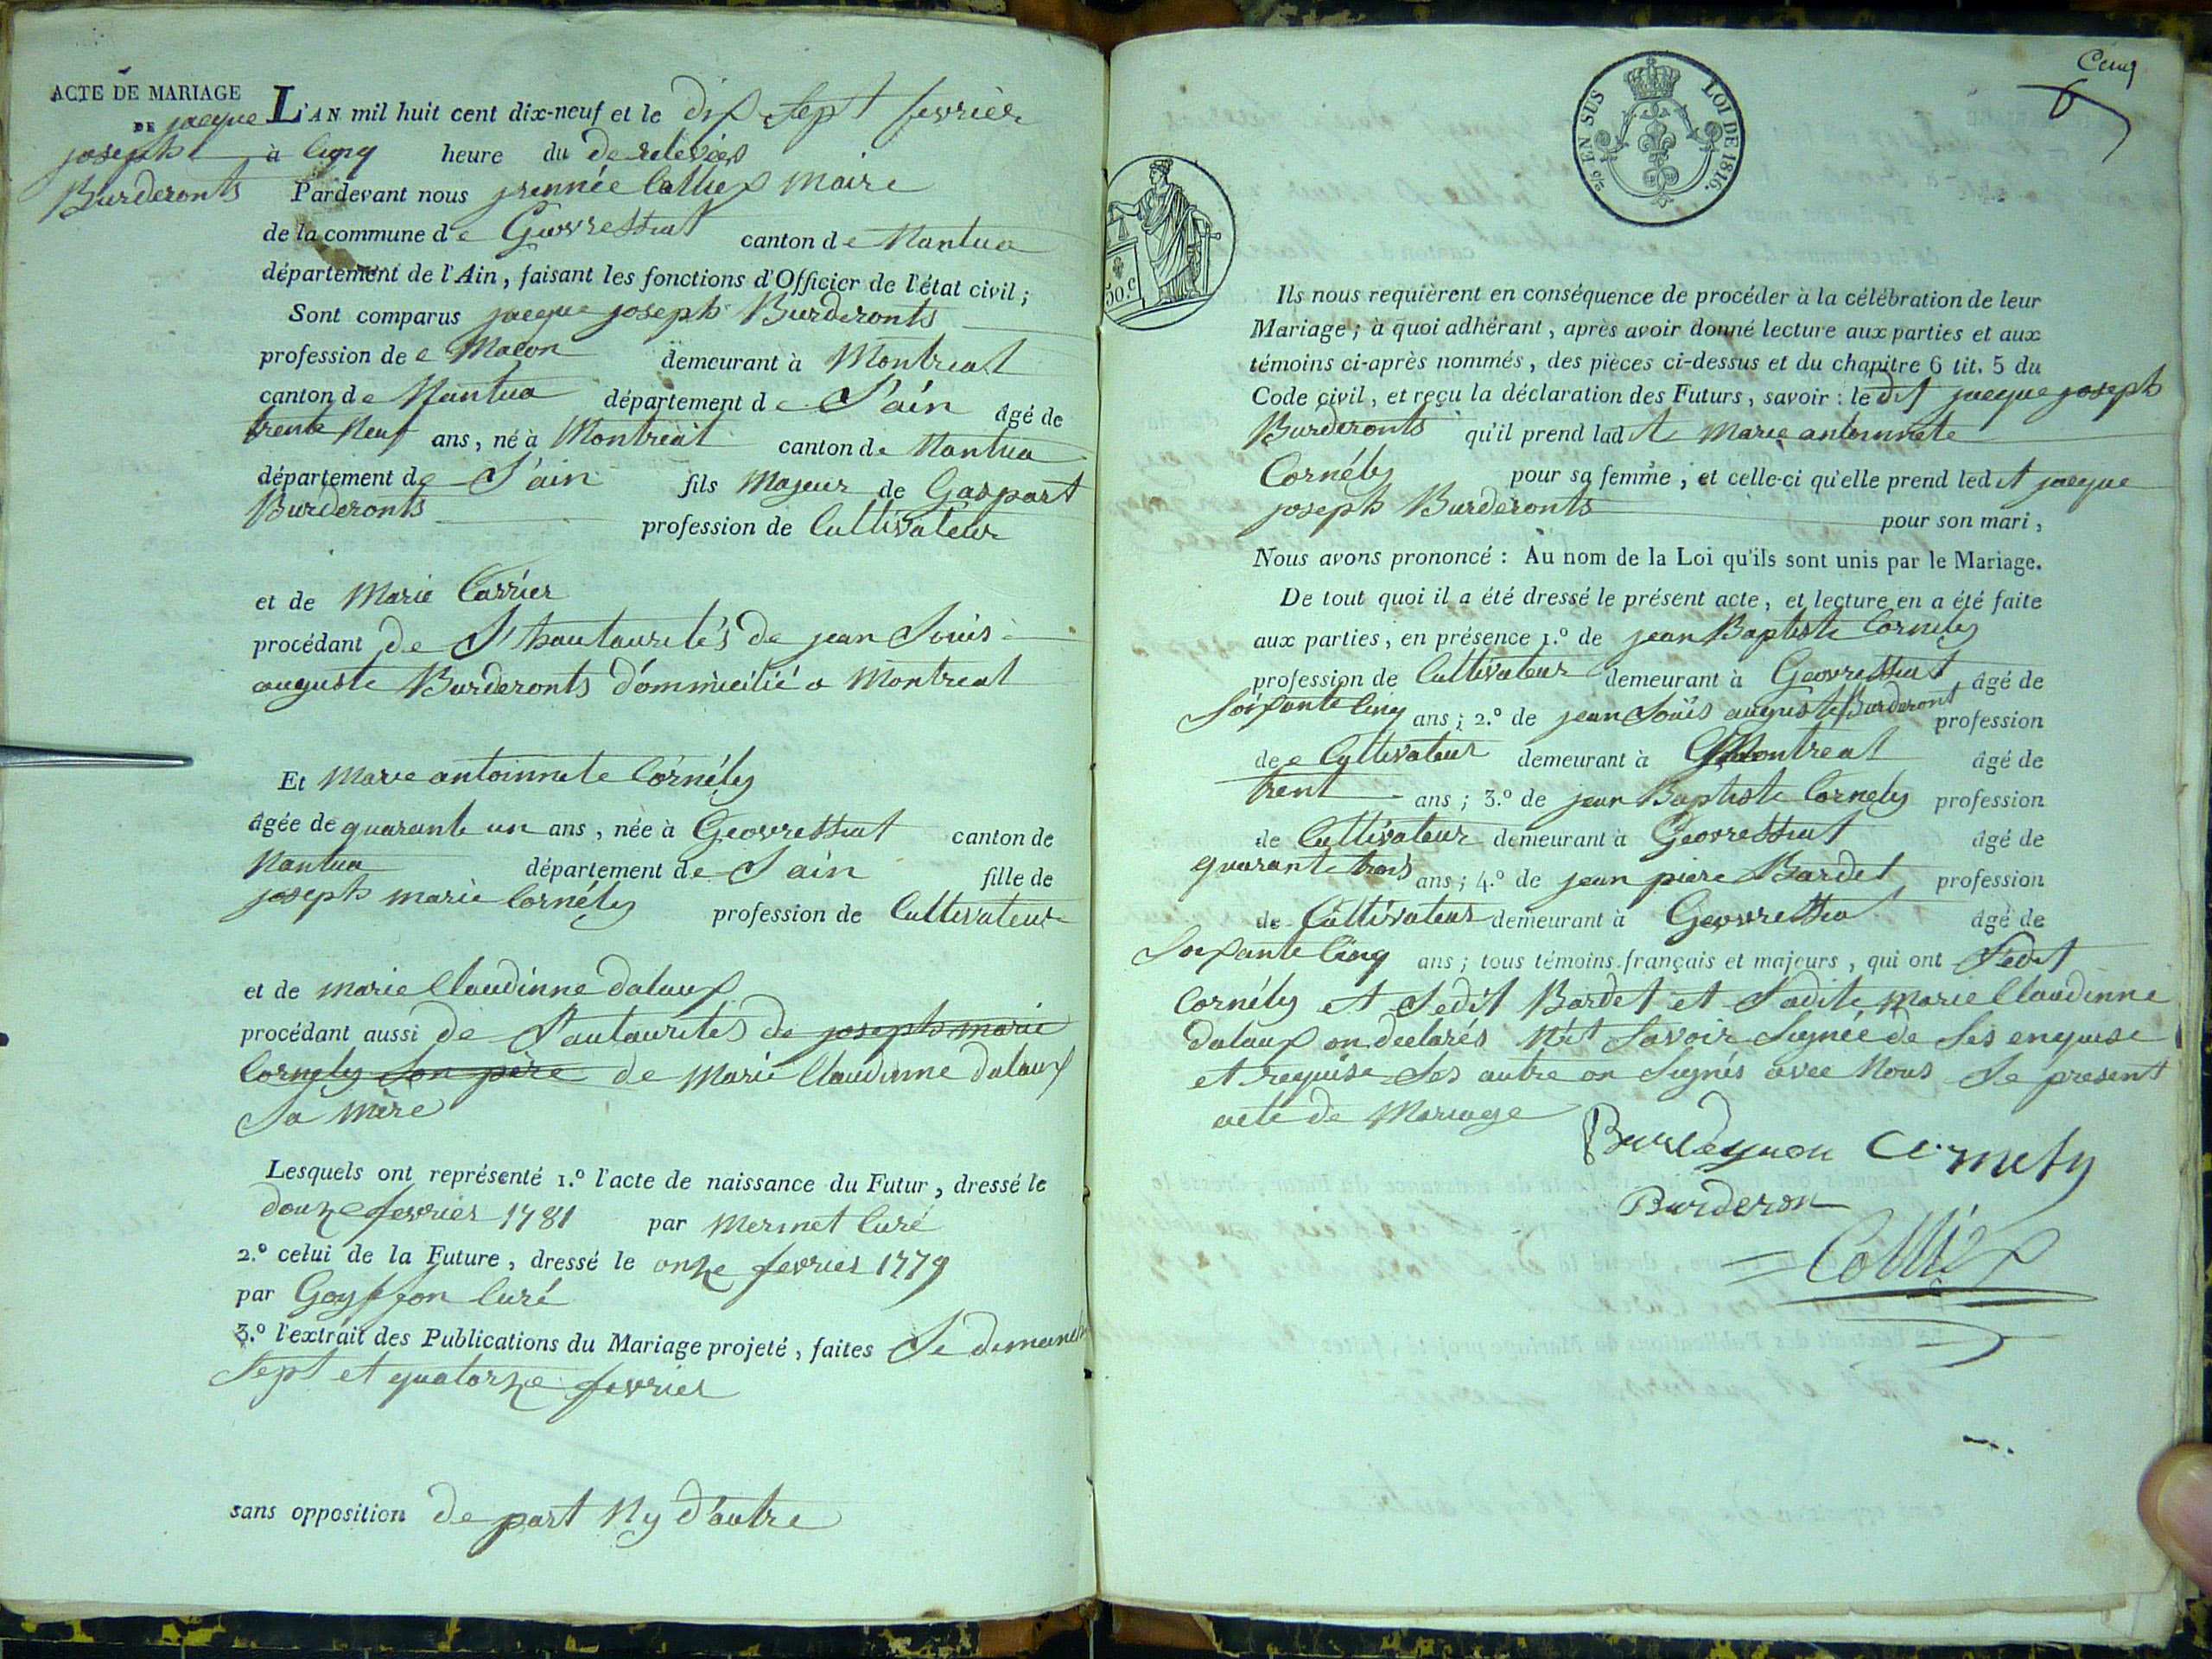 ACTE DE MARIAGE
DE jacque
joseph
Burderonts
L'AN mil huit cent dix-neuf et le dix sept fevrier
à cinq heure du de relevées
Pardevant nous Maire
de la commune de Geovressiat canton de Nantua
département de l'Ain, faisant les fonctions d'Officier de l'état civil;
Sont comparus jacque joseph Burderonts
profession de e Macon demeurant à Montreal
canton de Nantua département de L'ain âgé de
trente Neuf ans, né à Montreal canton de Nantua
département de L'ain fils Majeur de Gaspart
Burderonts profession de Cultivateur
et de Marie Carrier
procédant de L'hautaurités de jean Louis
auguste Burderonts dommicilié a Montreal
Et Marie antoinnete Cornély
âgée de quarante un ans, née à Geovressiat canton de
Nantua département de L'ain fille de
joseph marie Cornély profession de Cultivateur
et de marie Claudinne dalaux
procédant aussi de L'autaurités de joseph marie
Cornely son père de Marie Claudinne dalaux
Sa mère
Lesquels ont représenté 1.º l'acte de naissance du Futur, dressé le
douze fevrier 1781 par Mermet Curé
2.º celui de la Future, dressé le onze fevrier 1779
par Goyffon Curé
3.º l'extrait des Publications du Mariage projeté, faites Le
Sept et quatorze fevrier
sans opposition de part Ny d'autre
Cinq
LOI DE 1816.
EN SUS
50.c
Ils nous requièrent en conséquence de procéder à la célébration de leur
Mariage; à quoi adhérant, après avoir donné lecture aux parties et aux
témoins ci-après nommés, des pièces ci-dessus et du chapitre 6 tit. 5 du
Code civil, et reçu la déclaration des Futurs, savoir: le dit jacque joseph
Burderonts qu'il prend ladte Marie antoinnete
Cornély pour sa femme, et celle-ci qu'elle prend ledit jacque
joseph Burderonts pour son mari,
Nous avons prononcé: Au nom de la Loi qu'ils sont unis par le Mariage.
De tout quoi il a été dressé le présent acte, et lecture en a été faite
aux parties, en présence 1.º de jean Baptiste Cornély
profession de Cultivateur demeurant à Geovressiat âgé de
Soixante Cinq ans; 2.º de jean Louis auguste Burderont profession
de e Cultivateur demeurant à Montreal âgé de
trent ans; 3.º de jean Baptiste Cornely profession
de Cultivateur demeurant à Geovressiat âgé de
quarante trois ans; 4.º de jean piere Bardet profession
de Cultivateur demeurant à Geovressiat âgé de
Soixante Cinq ans; tous témoins français et majeurs, qui ont Ledit
Cornély et Ledit Bardet et Ladite Marie Claudinne
dalaux on declarés Savoir Signée de Ses enquise
et requise Les autre on Signés avec Nous Le present
acte de Mariage
Cornely
Burderon